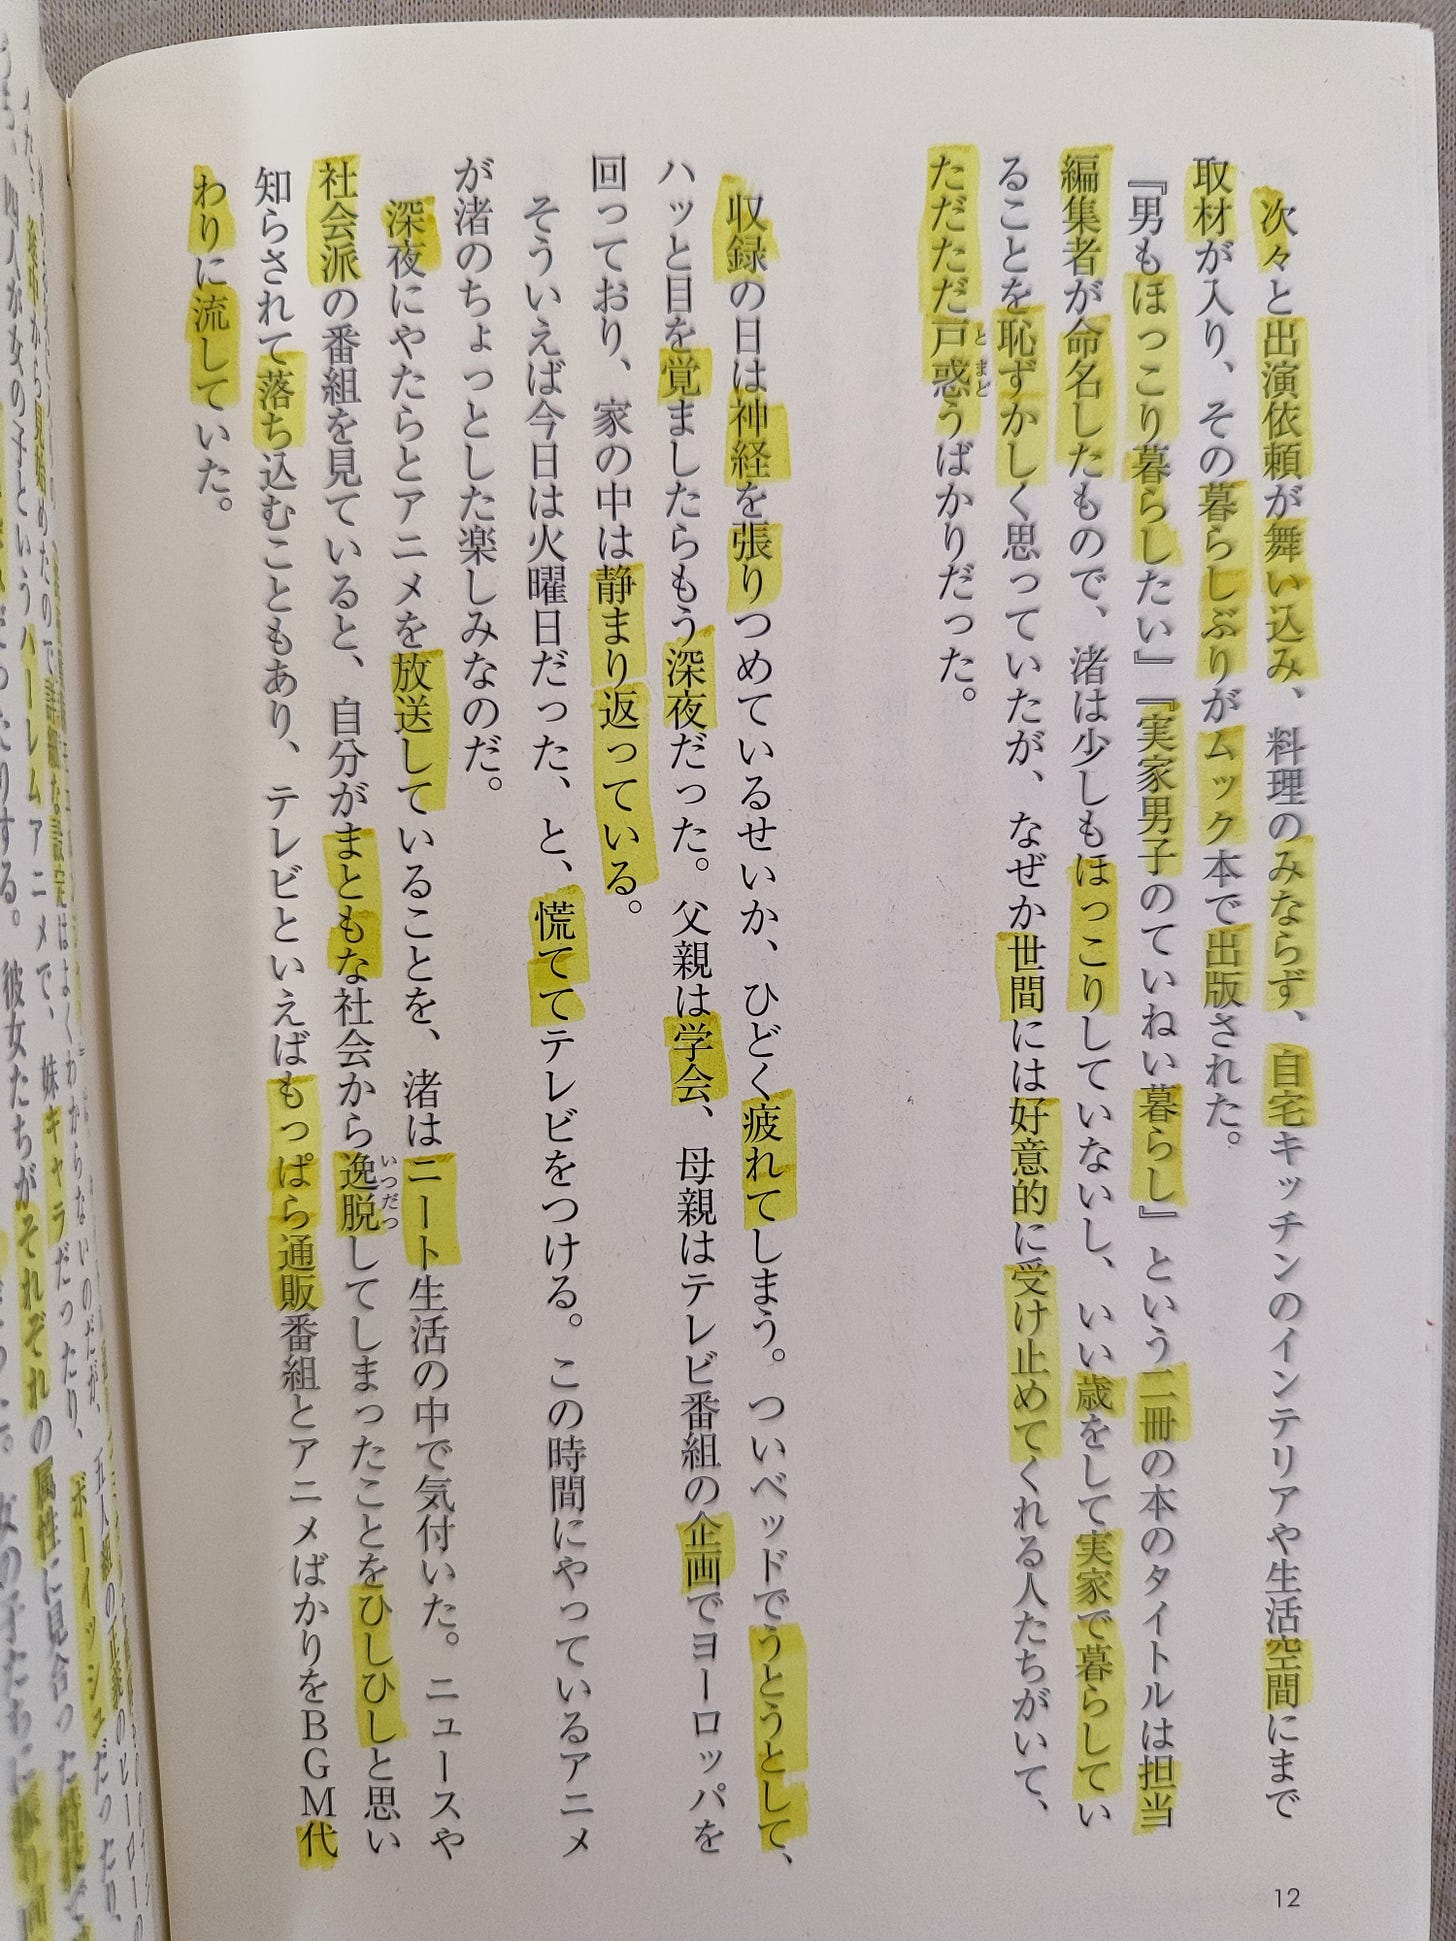 次々と出演依頼が舞い込み、料理のみならず、自宅キッチンのインテリアや生活空間にまで
取材が入り、その暮らしぶりがムック本で出版された。
『男もほっこり暮らしたい』『実家男子のていねい暮らし』という二冊の本のタイトルは担当
編集者が命名したもので、渚は少しもほっこりしていないし、いい歳をして実家で暮らしてい
ることを恥ずかしく思っていたが、なぜか世間には好意的に受け止めてくれる人たちがいて、
ただただ戸惑うばかりだった。
とまど
収録の日は神経を張りつめているせいか、ひどく疲れてしまう。ついベッドでうとうとして、
ハッと目を覚ましたらもう深夜だった。父親は学会、母親はテレビ番組の企画でヨーロッパを
回っており、家の中は静まり返っている。
そういえば今日は火曜日だった、と、慌ててテレビをつける。この時間にやっているアニメ
が渚のちょっとした楽しみなのだ。
深夜にやたらとアニメを放送していることを、渚はニート生活の中で気付いた。ニュースや
社会派の番組を見ていると、自分がまともな社会から逸脱してしまったことをひしひしと思い
いつだつ
知らされて落ち込むこともあり、テレビといえばもっぱら通販番組とアニメばかりをBGM代
わりに流していた。
12
四人が女の子というハーレムアニメで、妹キャラだったり、ボーイッシュだったり、
彼女たちがそれぞれの属性に見合った